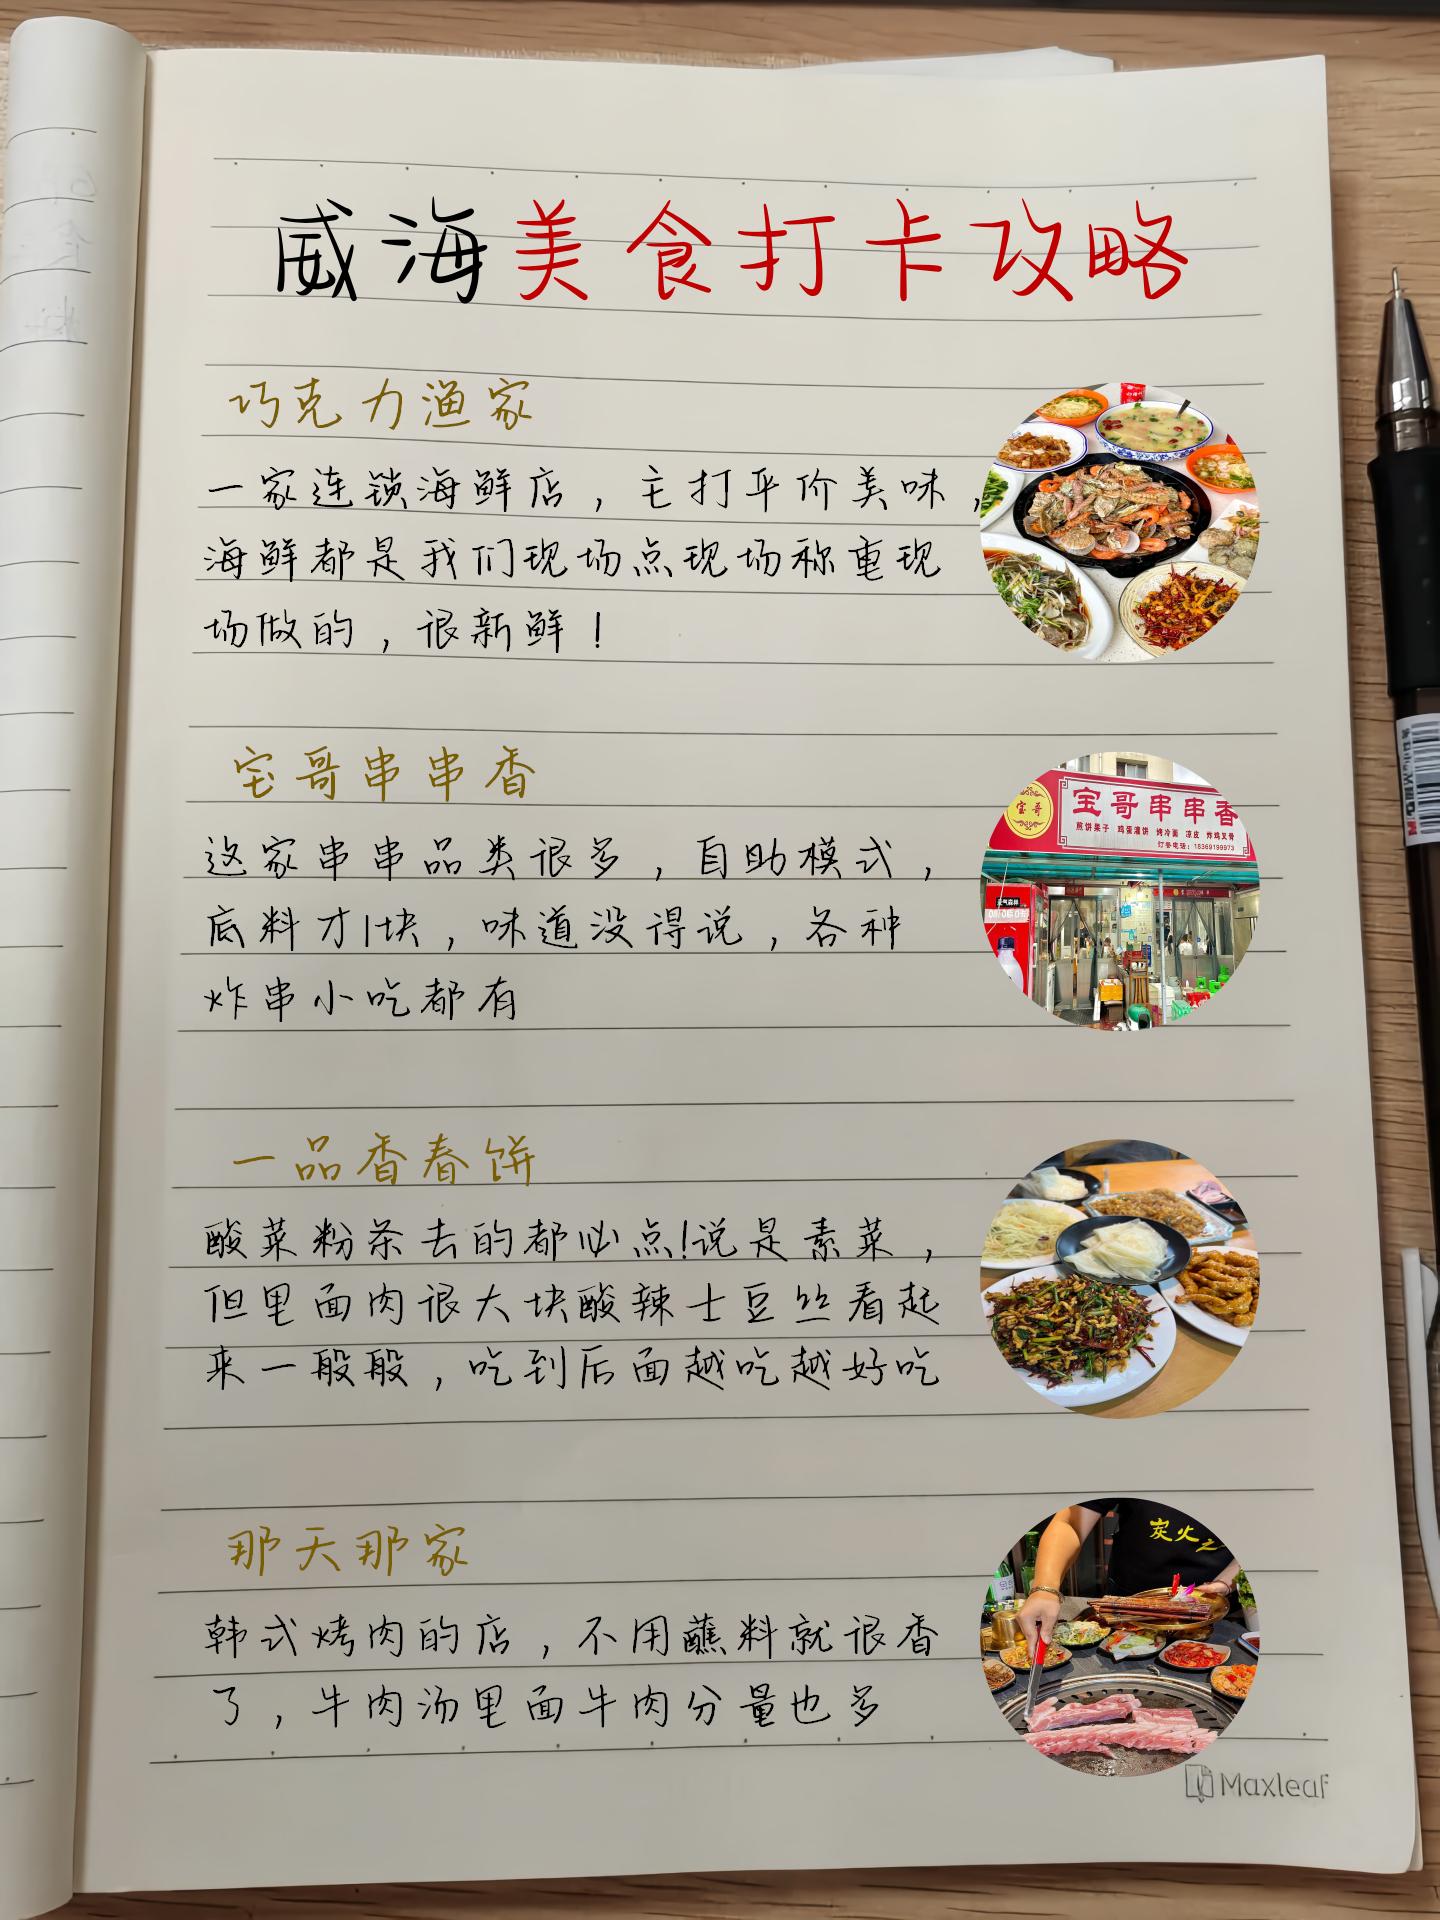 威海美食打卡攻略
巧克力渔家
一家连锁海鲜店，主打平价美味，
海鲜都是我们现场点现场称重现
场做的，很新鲜！
宝哥串串香
宝哥
宝哥串串香
煎饼果子 鸡蛋灌饼 烤冷面 凉皮 炸鸡叉骨
订餐电话：18369199973
这家串串品类很多，自助模式，
底料才1块，味道没得说，各种
炸串小吃都有
一品香春饼
酸菜粉条去的都必点!说是素菜，
但里面肉很大块酸辣土豆丝看起
来一般般，吃到后面越吃越好吃
那天那家
炭火之
韩式烤肉的店，不用蘸料就很香
了，牛肉汤里面牛肉分量也多
Maxleaf